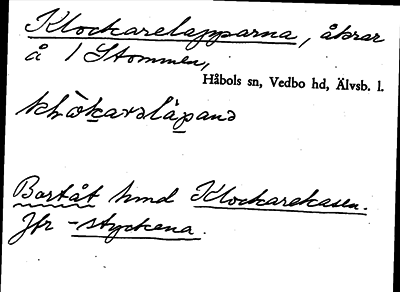 Klockarelapparna, åkrar
å 1 Stommen,
Håbols sn, Vedbo hd, Älvsb. l.
Bortåt hmd Klockarekasen.
Jfr -styckena.